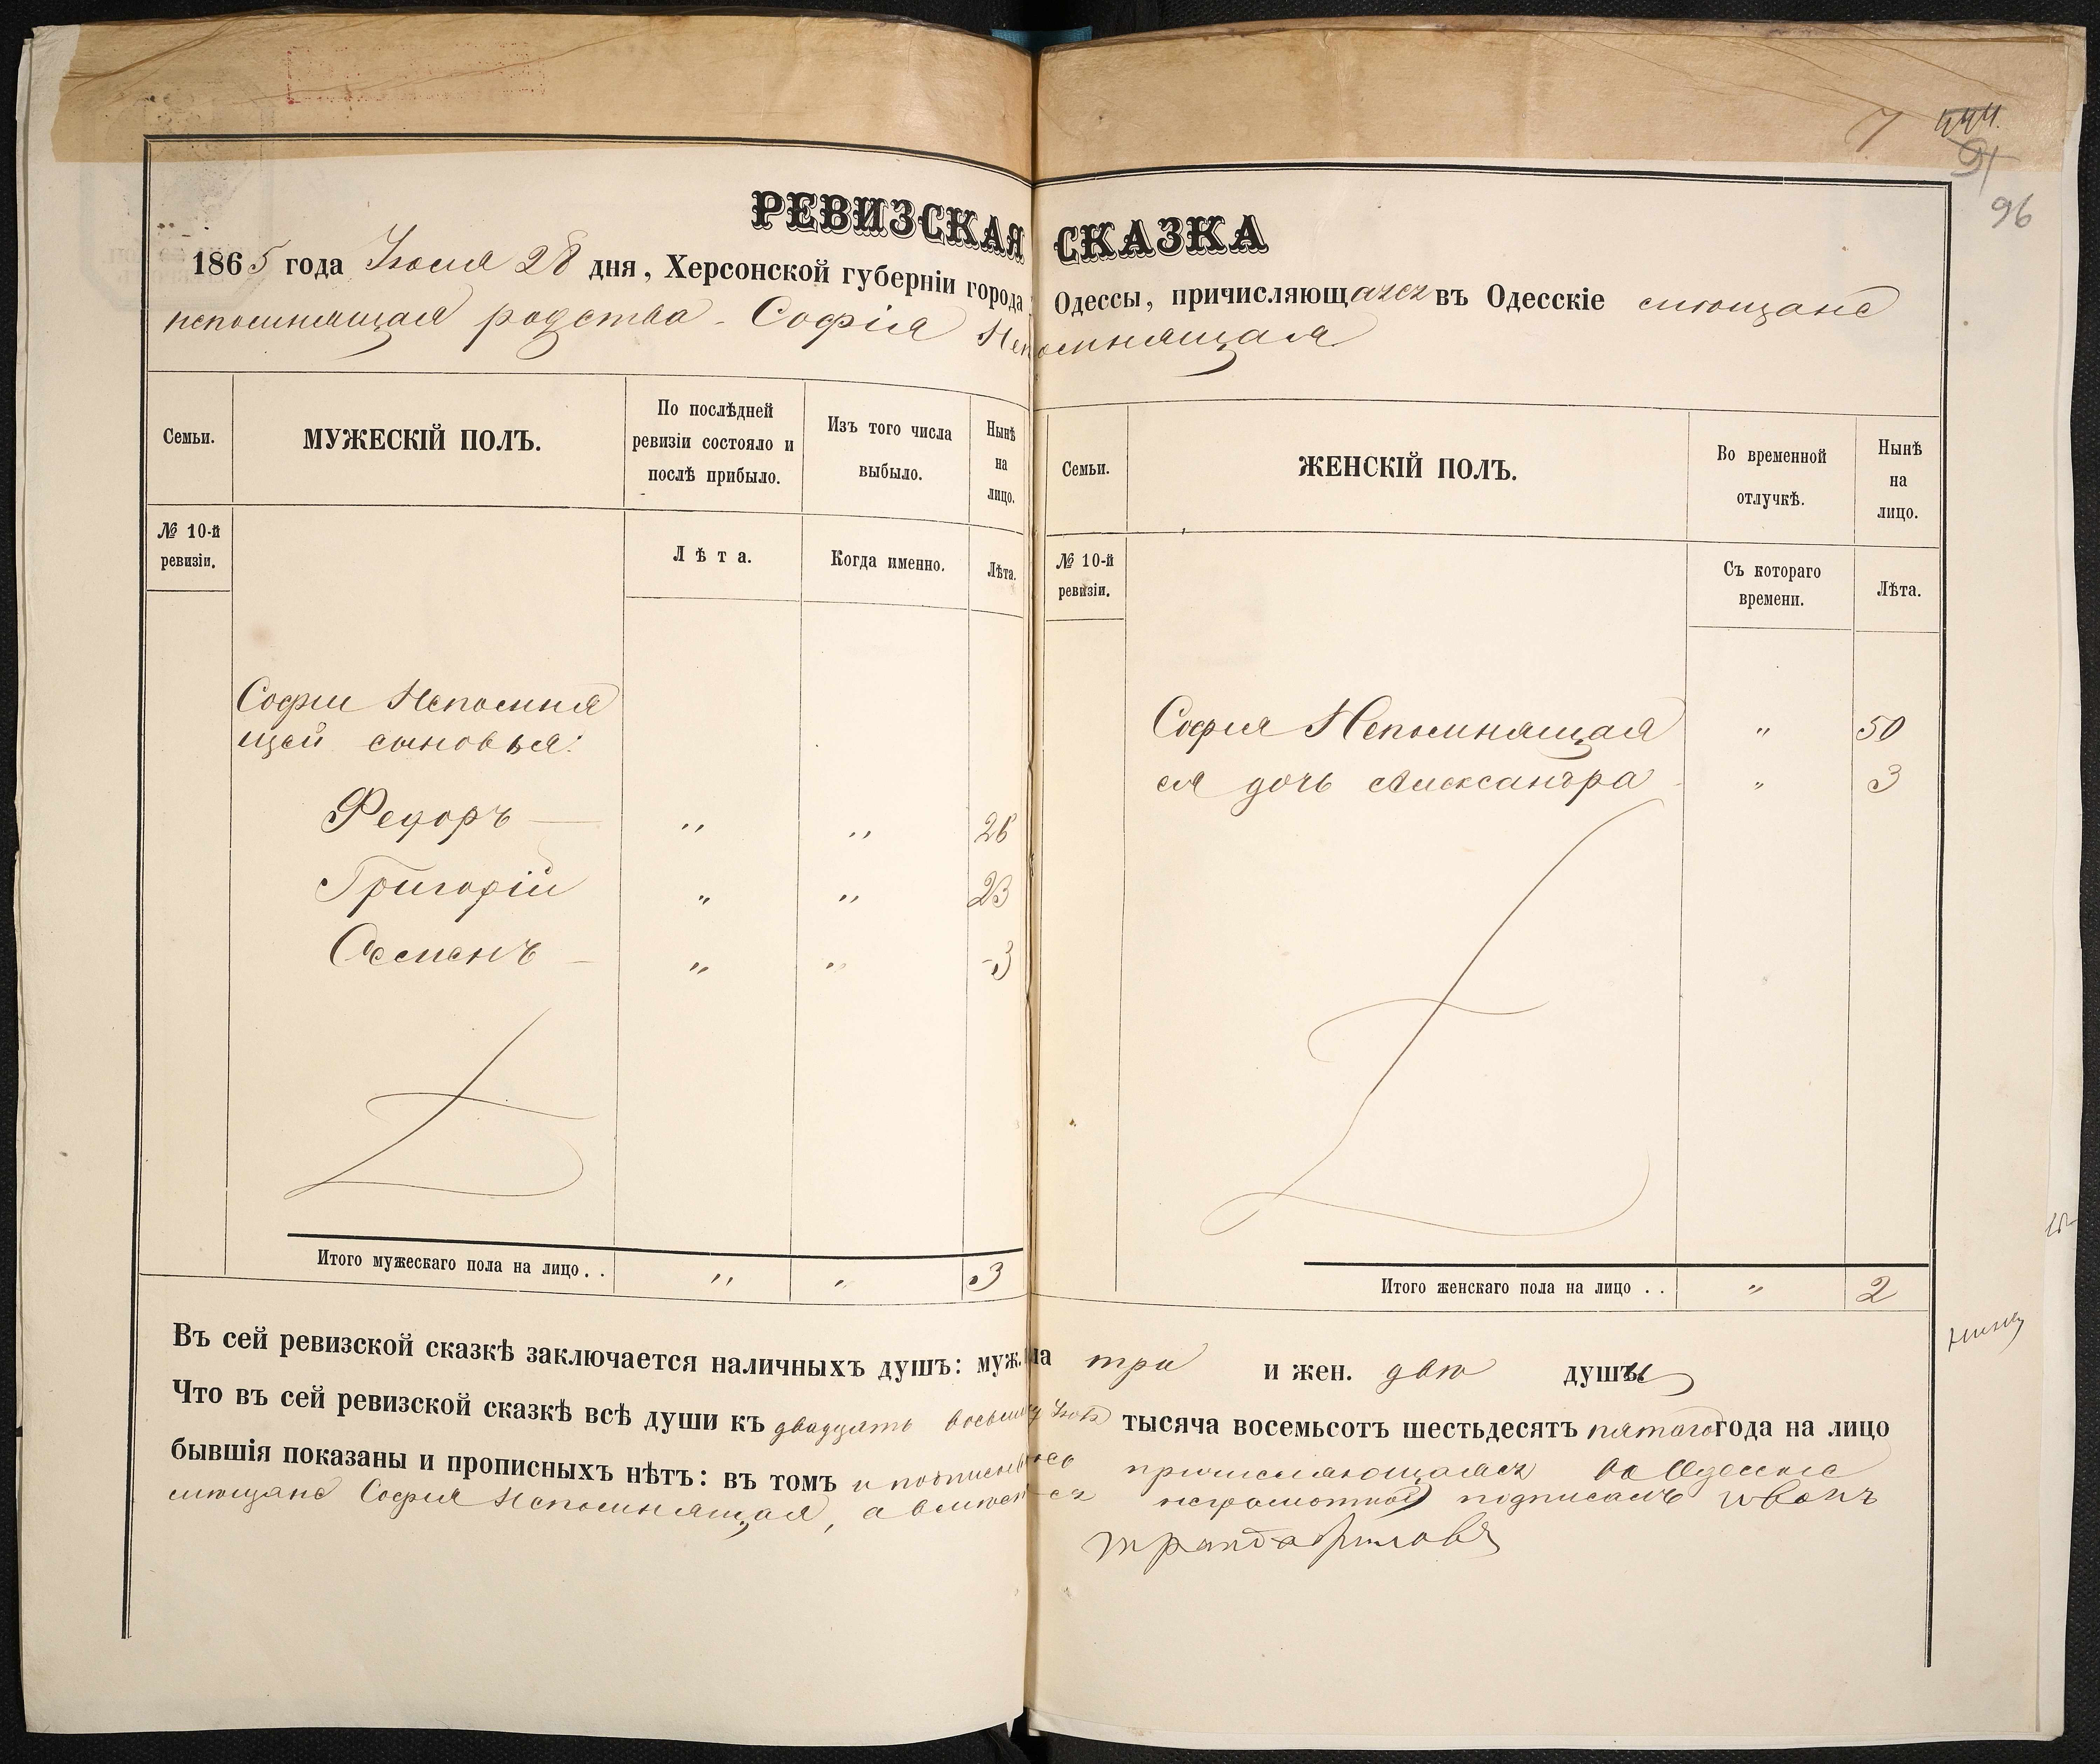 7 444.
91
96
РЕВИЗСКАЯ СКАЗКА
1865 года Июля 28 дня, Херсонской губерніи города Одессы, причисляющаяся въ Одесскіе мѣщане
непомнящая родства - Софія Непомнящая
Семьи.
МУЖЕСКІЙ ПОЛЪ.
По послѣдней
ревизіи состояло и
послѣ прибыло.
Изъ того числа
выбыло.
Нынѣ
на
лицо.
№ 10-й
ревизіи.
Лѣта.
Когда именно.
Лѣта.
Софіи Непомня
щей сыновья:
Федоръ — " " 26
Григорій " " 23
Семенъ — " " 3
Итого мужескаго пола на лицо . . " " 3
Семьи.
ЖЕНСКІЙ ПОЛЪ.
Во временной
отлучкѣ.
Нынѣ
на
лицо.
№ 10-й
ревизіи.
Съ котораго
времени.
Лѣта.
Софія Непомнящая " 50
ея дочь Александра " 3
Итого женскаго пола на лицо . . " 2
Въ сей ревизской сказкѣ заключается наличныхъ душъ: муж. пола три и жен. двѣ душы
Что въ сей ревизской сказкѣ всѣ души къ двадцать восьмому Іюля тысяча восемьсотъ шестьдесятъ пятаго года на лицо
бывшія показаны и прописныхъ нѣтъ: въ томъ и подписываюсь причисляющаяся въ Одесскіе
мѣщане Софія Непомнящая, а вмѣсто ея неграмотной подписалъ